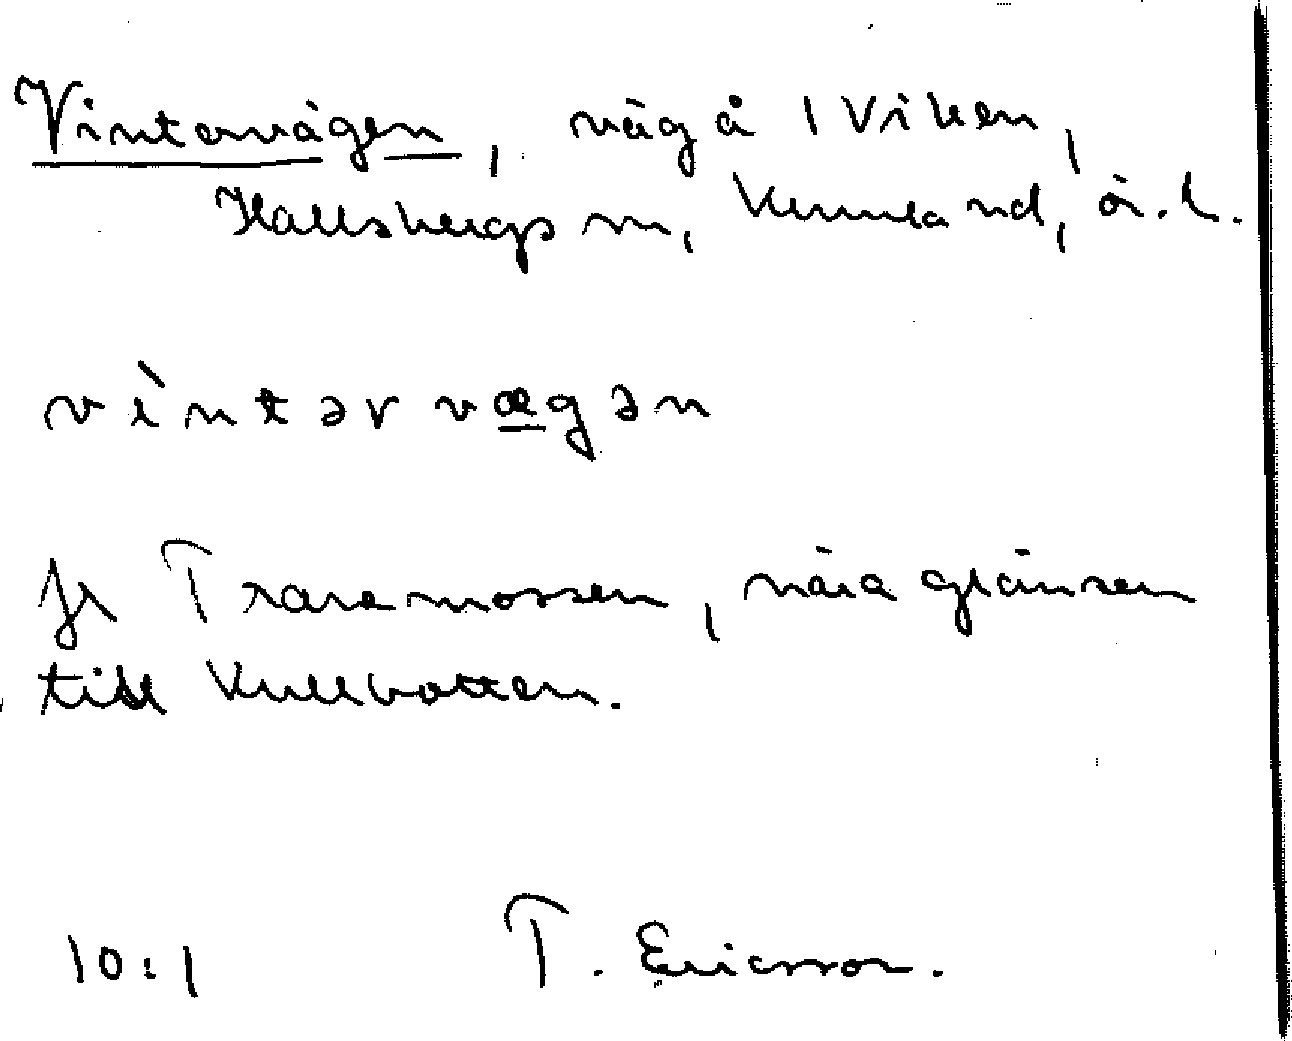 Vintervägen, väg å 1 Viken,
Hallsbergs sn, Kumla hd, ör. l.
vìntər vægən
Jr Tranemossen, nära gränsen
till Kullbotten.
10:1 T. Ericsson.